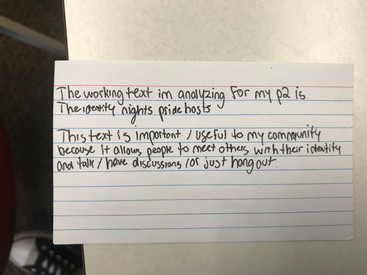 The working text im analyzing for my p2 is
The identity nights pride hosts
This text is important / useful to my community
because it allows people to meet others with their identity
and talk / have discussions / or just hang out